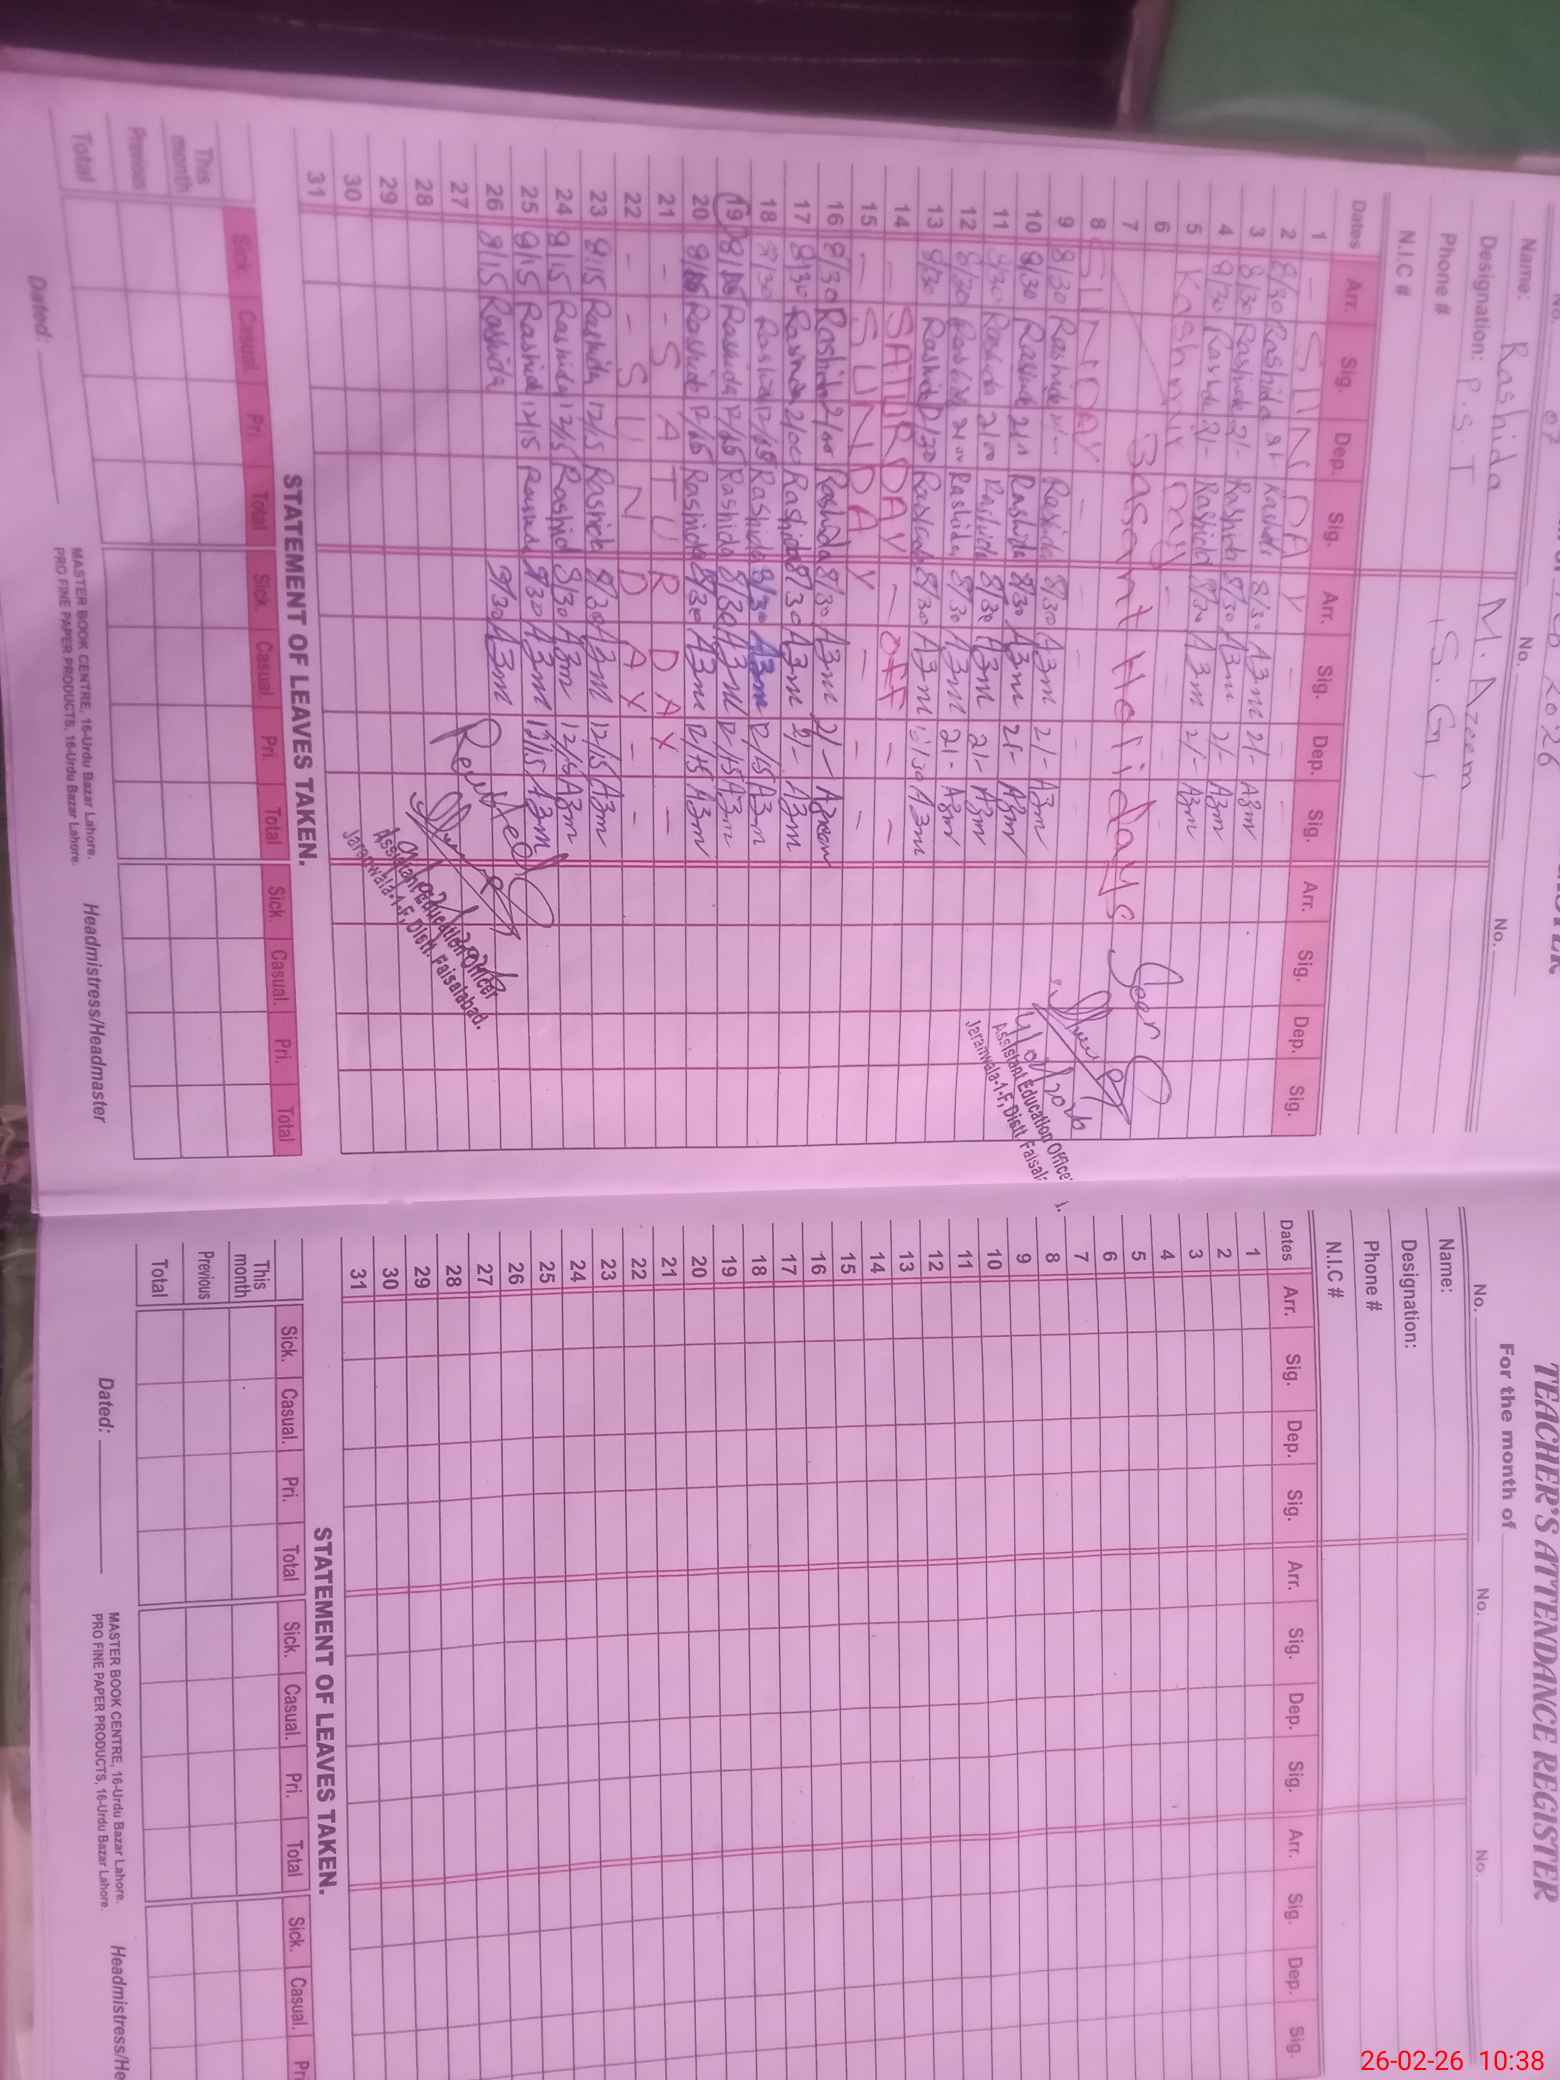 Feb 2026
No. No.
Name: Rashida M. Azeem
Designation: P.S.T S.G
Phone #
N.I.C #
Dates Arr. Sig. Dep. Sig. Arr. Sig. Dep. Sig. Arr. Sig. Dep. Sig.
1 SUNDAY
2 8/30 Rashida A3m 2/- A3m
3 8/30 Rashida 2/- Rashida 8/30 A3m 2/- A3m
4 8/30 Rashida 2/- Rashida 8/30 A3m 2/- A3m
5 Kashmir Day
6 Basant Holidays
7
8 SUNDAY
9 8/30 Rashida Rashida 8/30 A3m 2/- A3m
10 8/30 Rashida Rashida 8/30 A3m 2/- A3m
11 8/30 Rashida 2/00 Rashida 8/30 A3m 2/- A3m
12 8/30 Rashida 2/00 Rashida 8/30 A3m 2/- A3m
13 8/30 Rashida 12/30 Rashida 8/30 A3m 12/30 A3m
14 SATURDAY - OFF - -
15 - SUNDAY - - -
16 8/30 Rashida 2/00 Rashida 8/30 A3m 2/- Azeem
17 8/30 Rashida 2/00 Rashida 8/30 A3m 2/- A3m
18 8/30 Rashida 12/15 Rashida 8/30 A3m 12/15 A3m
19 8/15 Rashida 12/15 Rashida 8/30 A3m 12/15 A3m
20 8/15 Rashida 12/15 Rashida 8/30 A3m 12/15 A3m
21 - - SATURDAY -
22 - - SUNDAY - -
23 8/15 Rashida 12/15 Rashida 8/30 A3m 12/15 A3m
24 8/15 Rashida 12/15 Rashida 8/30 A3m 12/15 A3m
25 8/15 Rashida 12/15 Rashida 8/30 A3m 12/15 A3m
26 8/15 Rashida 8/30 A3m
27
28
29
30
31
Seen
Assistant Education Office
Jaranwala-1-F, Distt Faisal
Assistant Education Officer
Jaranwala-1-F, Distt. Faisalabad.
STATEMENT OF LEAVES TAKEN.
Sick Casual Pri. Total Sick. Casual. Pri. Total Sick. Casual. Pri. Total
This month
Previous
Total
Dated:
MASTER BOOK CENTRE, 16-Urdu Bazar Lahore.
PRO FINE PAPER PRODUCTS, 16-Urdu Bazar Lahore.
Headmistress/Headmaster
TEACHER'S ATTENDANCE REGISTER
For the month of
No. No. No.
Name:
Designation:
Phone #
N.I.C #
Dates Arr. Sig. Dep. Sig. Arr. Sig. Dep. Sig. Arr. Sig. Dep. Sig.
1
2
3
4
5
6
7
8
9
10
11
12
13
14
15
16
17
18
19
20
21
22
23
24
25
26
27
28
29
30
31
STATEMENT OF LEAVES TAKEN.
Sick. Casual. Pri. Total Sick. Casual. Pri. Total Sick. Casual. Pri
This month
Previous
Total
Dated:
MASTER BOOK CENTRE, 16-Urdu Bazar Lahore.
PRO FINE PAPER PRODUCTS, 16-Urdu Bazar Lahore.
Headmistress/He
26-02-26 10:38